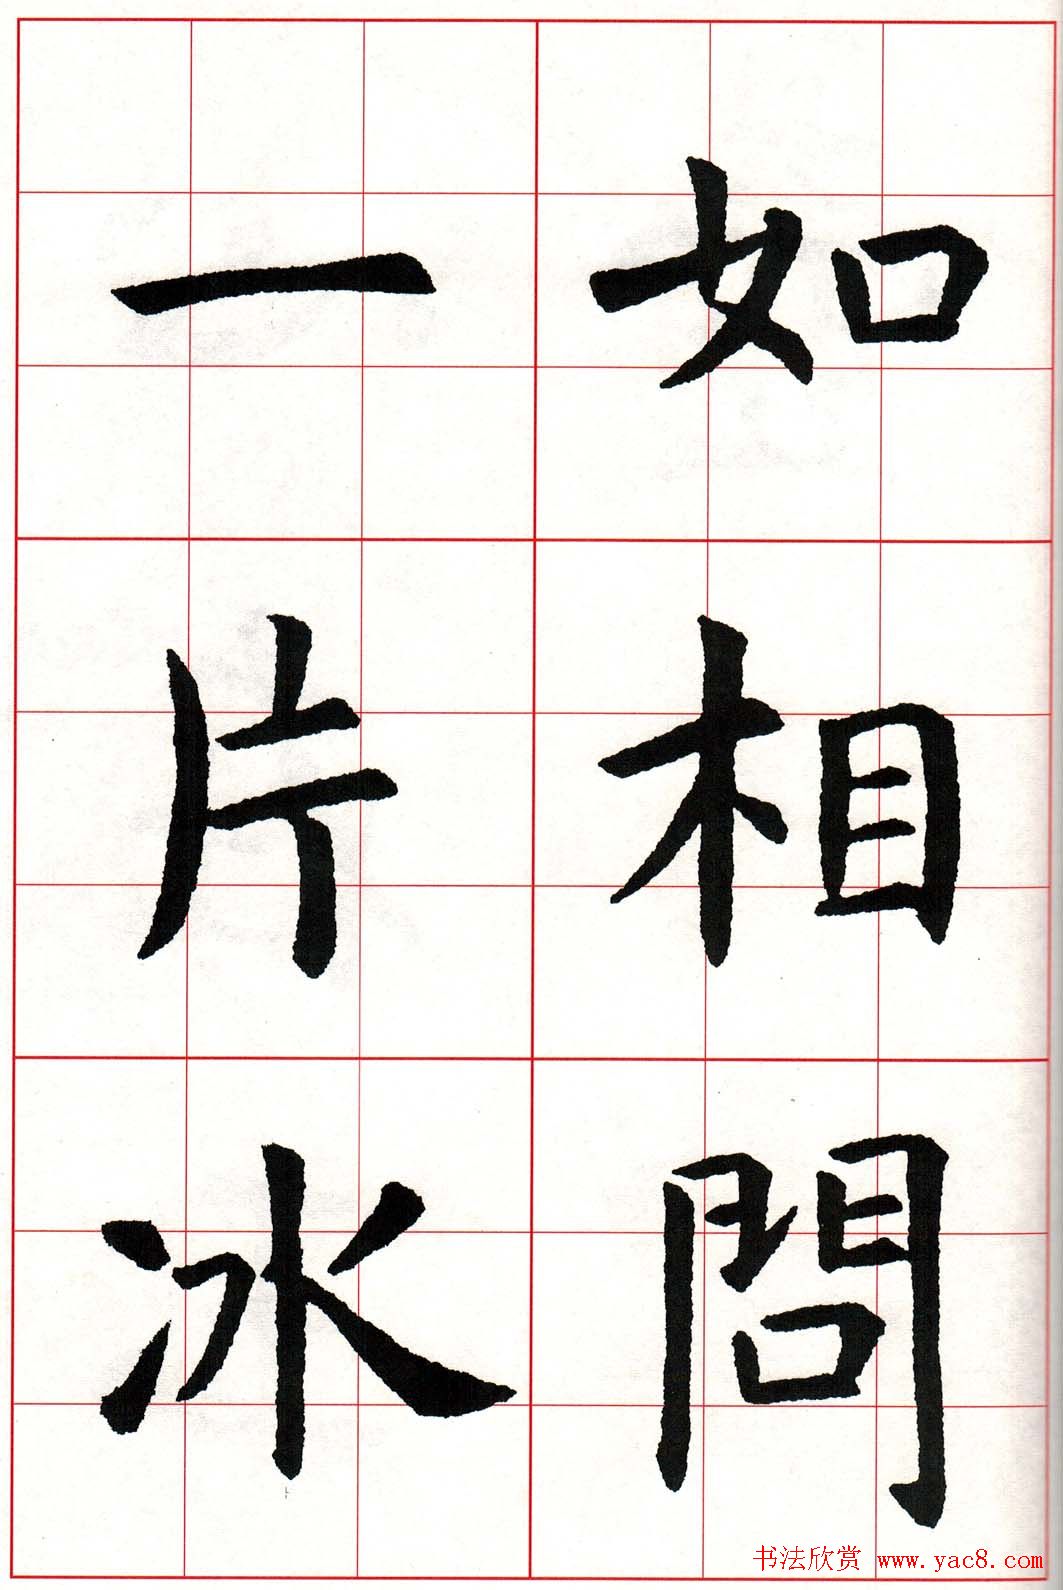 如相問
一片冰
书法欣赏 www.yac8.com